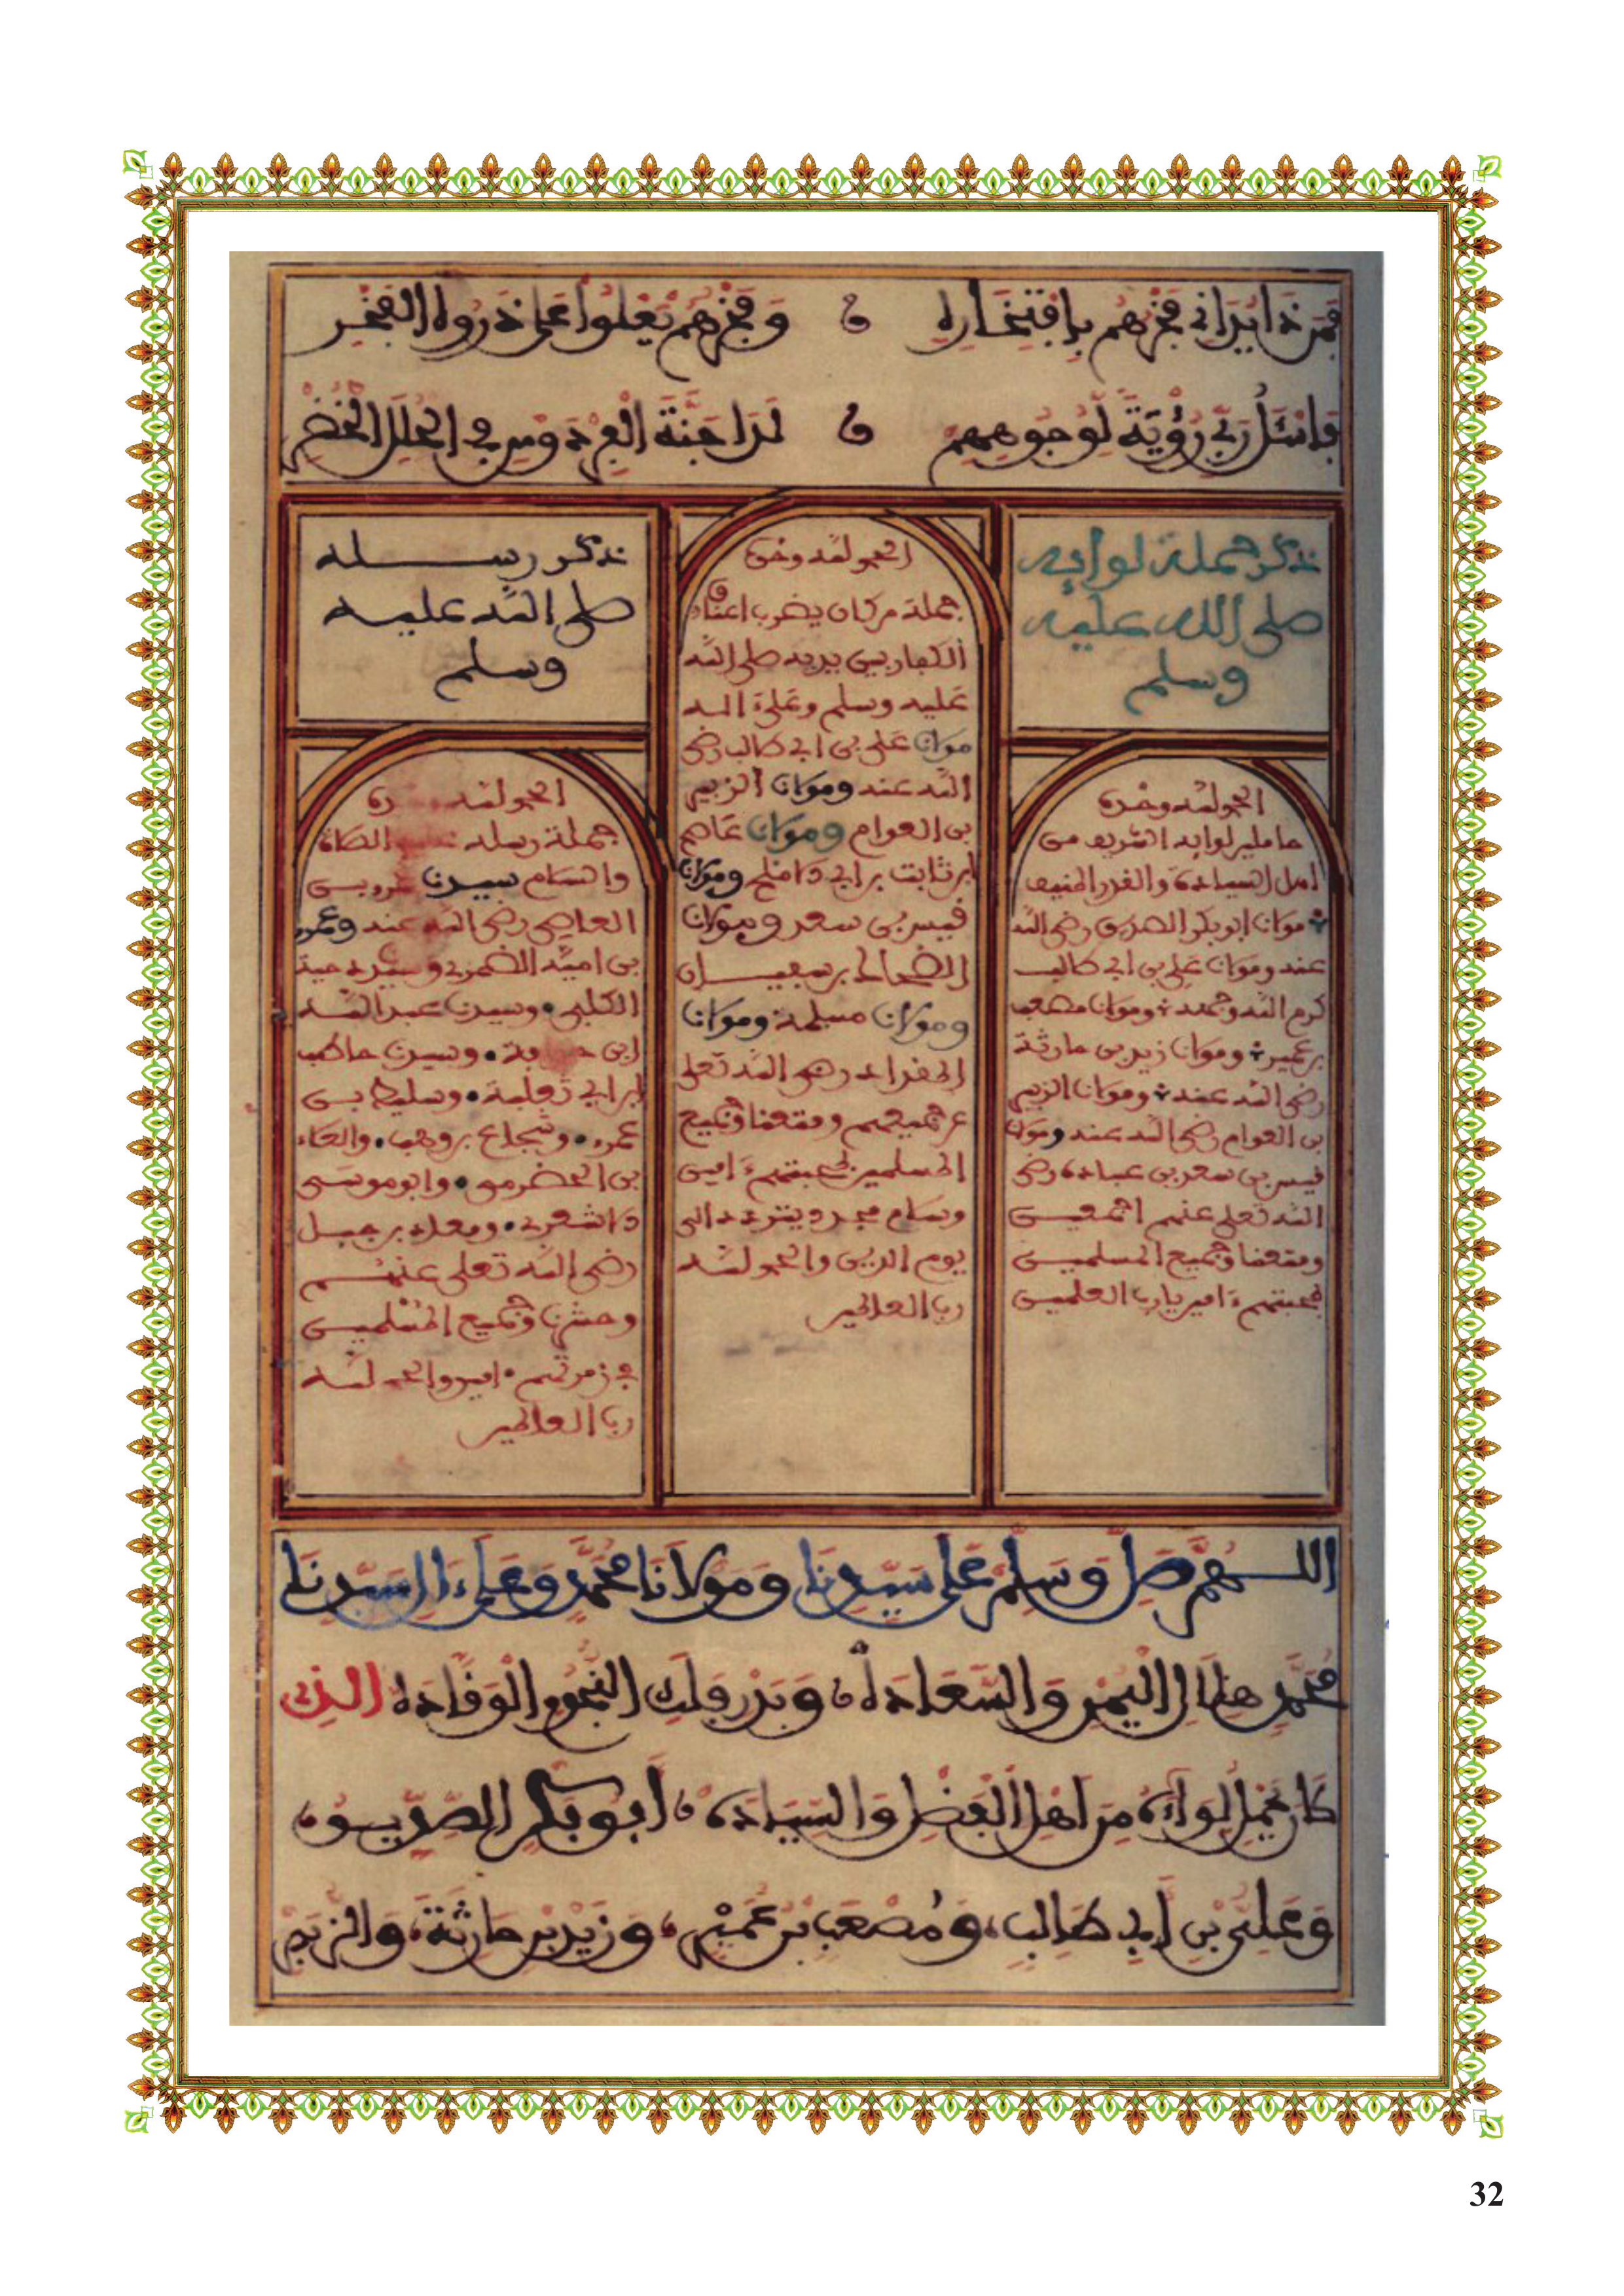 فمن ذا يدانى فخرهم بافتخاره و فخرهم تعلوا على ذروة الفخر
وأسئل ربى رؤية لوجوههم لدا جنة الفردوس فى الحلل الخضر
نذكر حملة لوايه
صلى الله عليه
وسلم
الحمد لله وحده
حاملين لوايه الشريف من
أهل السيادة والقدر المنيف
مولانا ابو بكر الصديق رضى الله
عنه ومولانا على بن ابى طالب
كرم الله وجهه ومولانا مصعب
بن عمير ومولانا زيد بن حارثة
رضى الله عنه ومولانا الزبير
بن العوام رضى الله عنه ومولانا
قيس بن سعد بن عبادة رضى
الله تعلى عنهم اجمعين
ومتعنا وجميع المسلمين
بمحبتهم ءامين يارب العلمين
الحمد لله وحده
جملة من كان يضرب اعناق
الكفار بين يديه صلى الله
عليه وسلم وعلى ءاله
مولانا على بن ابى طالب رضى
الله عنه ومولانا الزبير
بن العوام ومولانا عاصم
ابن ثابت بن ابى الافلح ومولانا
قيس بن سعد ومولانا
الضحاك بن سفيان
ومولانا مسلمة ومولانا
المقداد رضى الله تعلى
عن جميعهم ومتعنا وجميع
المسلمين بمحبتهم ءامين
وسلام الى
يوم الدين والحمد لله
رب العالمين
نذكر رسله
صلى الله عليه
وسلم
الحمد لله وحده
جملة رسله عليه الصلاة
والسلام سيدنا عمرو بن
العاصى رضى الله عنه وعمرو
بن امية الضمرى وسيدنا دحية
الكلبى وسيدنا عبد الله
ابن حذافة وسيدنا حاطب
ابن ابى بلتعة وسليط بن
عمرو وشجاع بن وهب والعلاء
بن الحضرمى وابو موسى
الاشعرى ومعاذ بن جبل
رضى الله تعلى عنهم
وحشرنا وجميع المسلمين
فى زمرتهم امين والحمد لله
رب العالمين
اللهم صل وسلم على سيدنا ومولانا محمد وعلى ءال سيدنا
محمد هلال اليمن والسعادة وبدر فلك النجوم الوقادة الذى
كان يحمل لواءه من أهل الفضل والسيادة أبو بكر الصديق
وعلى بن أبى طالب، ومصعب بن عمير، وزيد بن حارثة، والزبير
32